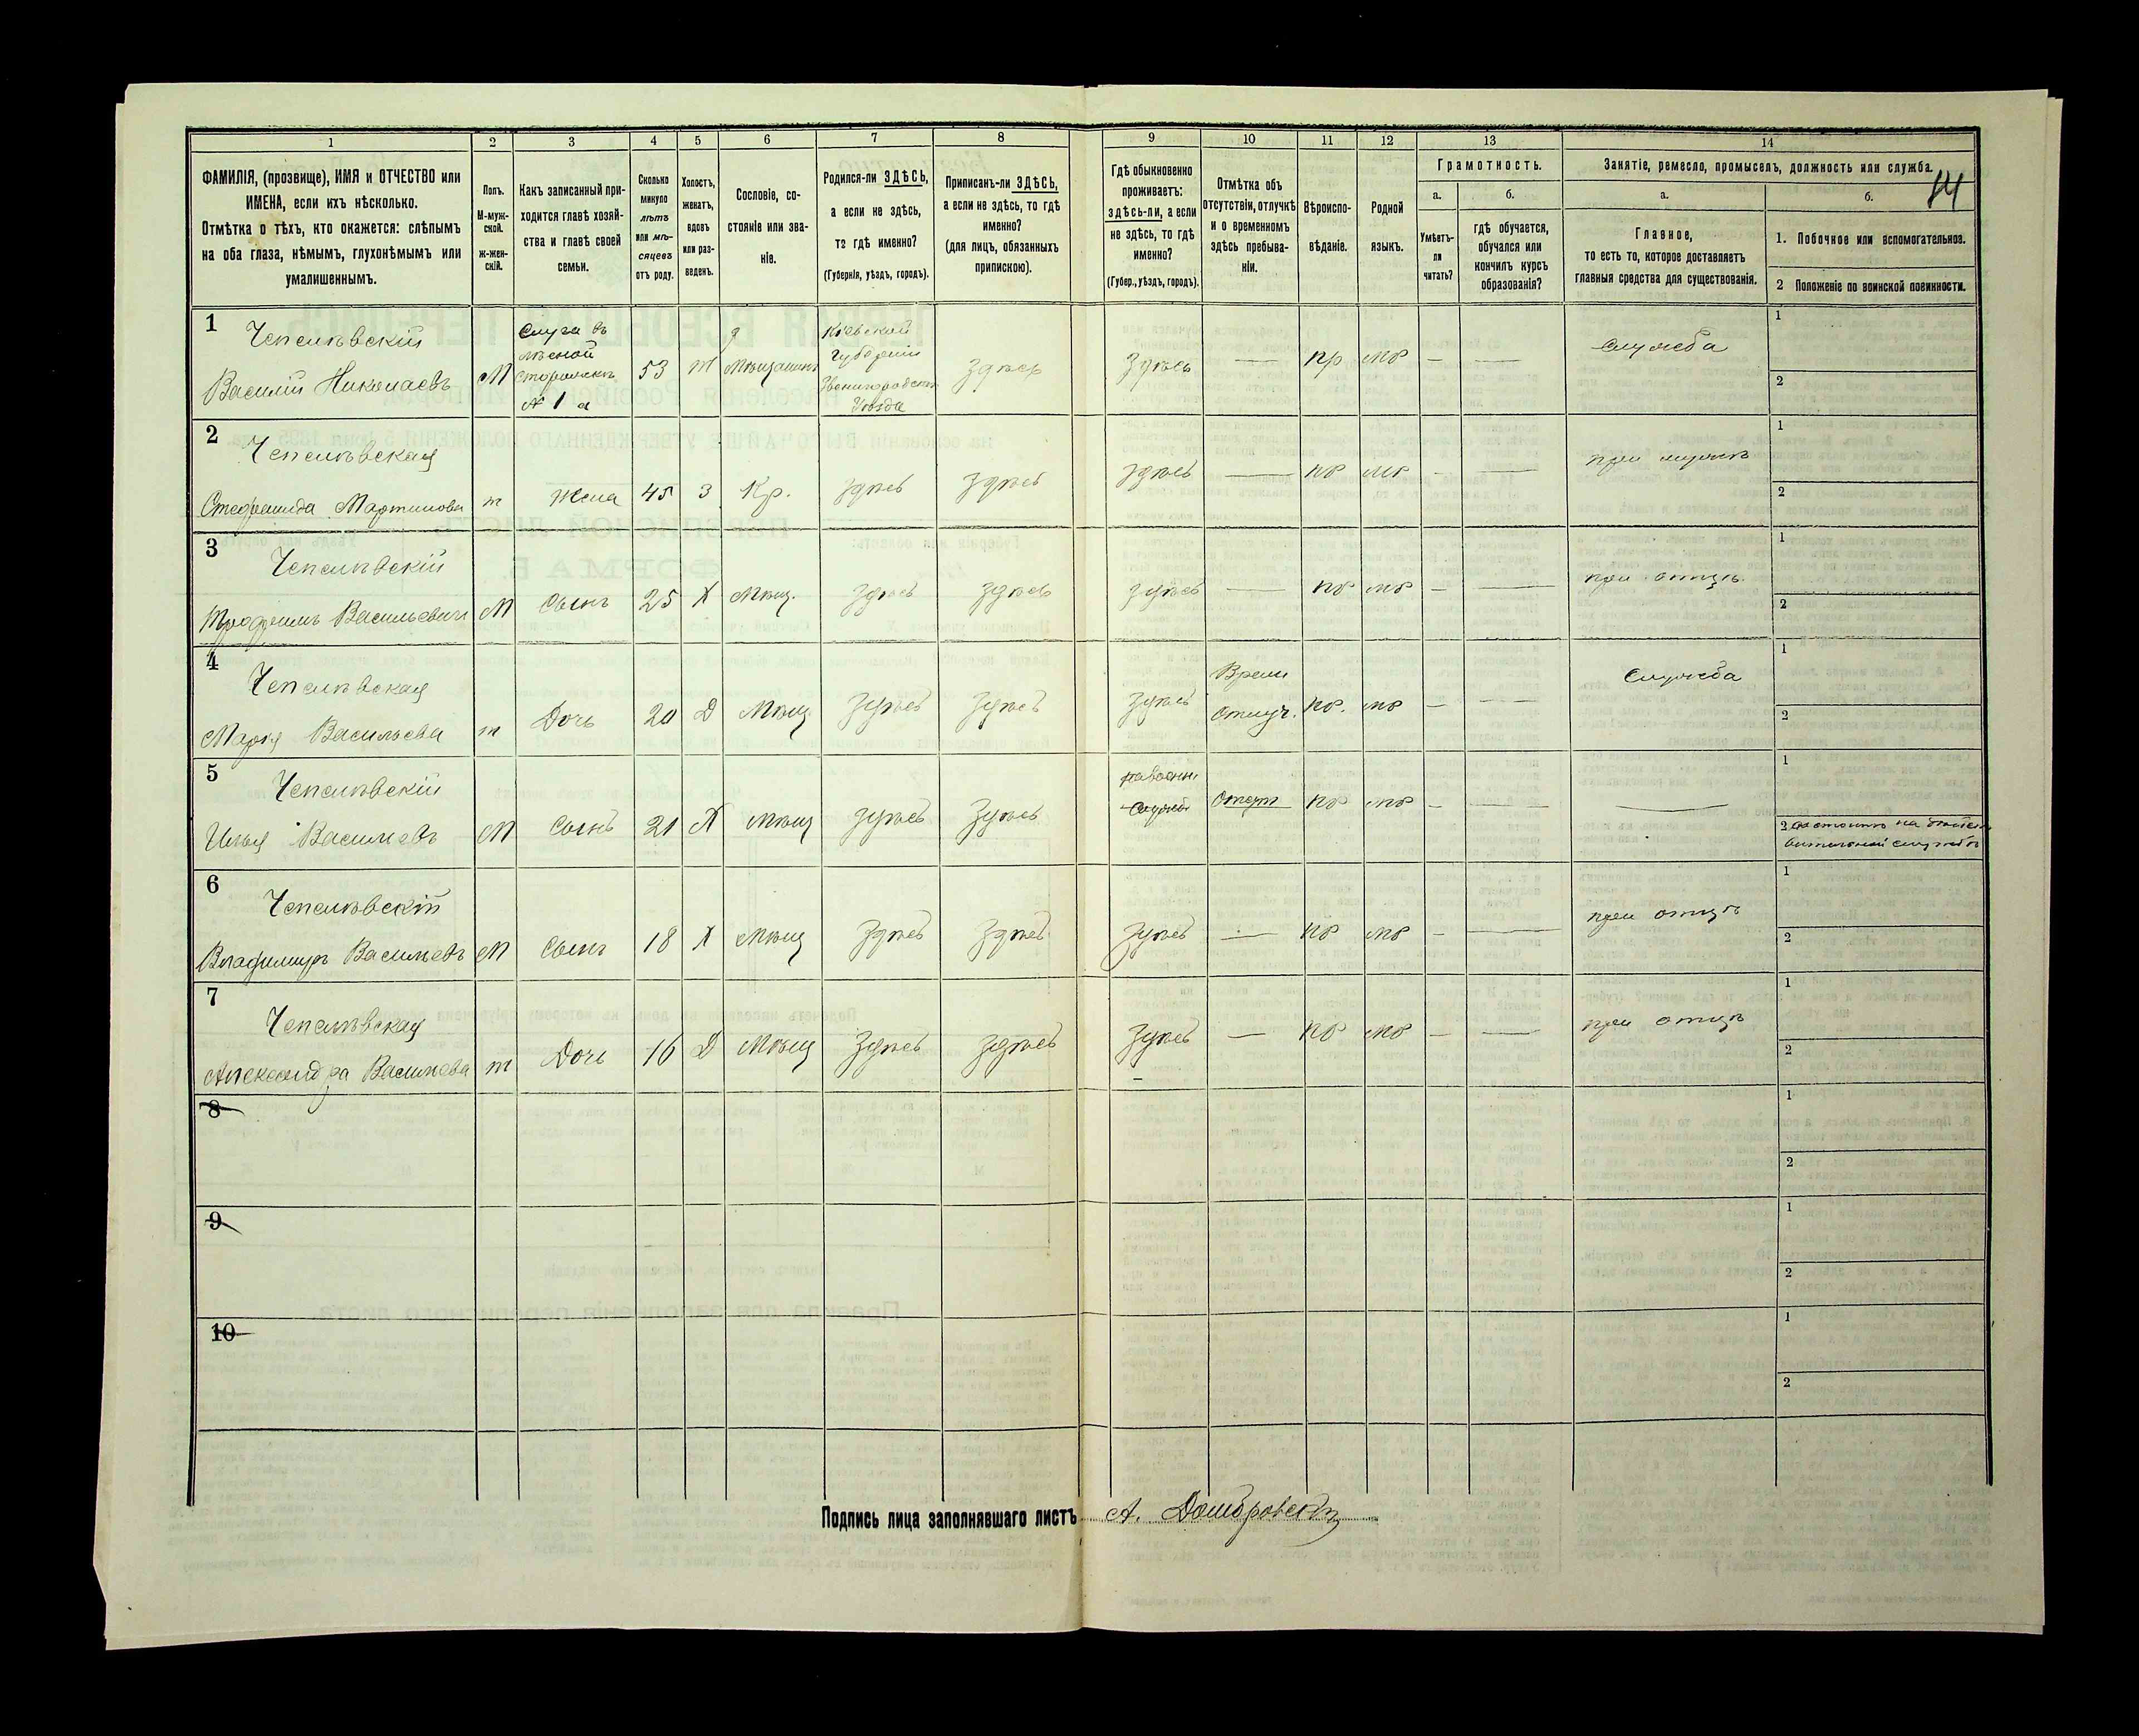 1 2 3 4 5 6 7 8 9 10 11 12 13 14
14
ФАМИЛІЯ, (прозвище), ИМЯ и ОТЧЕСТВО или
ИМЕНА, если ихъ нѣсколько.
Отмѣтка о тѣхъ, кто окажется: слѣпымъ
на оба глаза, нѣмымъ, глухонѣмымъ или
умалишеннымъ.
Полъ.
М-муж-
ской.
ж-жен-
скій.
Какъ записанный при-
ходится главѣ хозяй-
ства и главѣ своей
семьи.
Сколько
минуло
лѣтъ
или мѣ-
сяцевъ
отъ роду.
Холостъ,
женатъ,
вдовъ
или раз-
веденъ.
Сословіе, со-
стояніе или зва-
ніе.
Родился-ли ЗДѢСЬ,
а если не здѣсь,
то гдѣ именно?
(Губернія, уѣздъ, городъ).
Приписанъ-ли ЗДѢСЬ,
а если не здѣсь, то гдѣ
именно?
(для лицъ, обязанныхъ
припискою).
Гдѣ обыкновенно
проживаетъ:
здѣсь-ли, а если
не здѣсь, то гдѣ
именно?
(Губер., уѣздъ, городъ).
Отмѣтка объ
отсутствіи, отлучкѣ
и о временномъ
здѣсь пребыва-
ніи.
Вѣроиспо-
вѣданіе.
Родной
языкъ.
Грамотность.
а.
Умѣетъ-
ли
читать?
б.
гдѣ обучается,
обучался или
кончилъ курсъ
образованія?
Занятіе, ремесло, промыселъ, должность или служба.
а.
Главное,
то есть то, которое доставляетъ
главныя средства для существованія.
б.
1. Побочное или вспомогательное.
2 Положеніе по воинской повинности.
1 Чепелѣвскій
Василій Николаевъ
М
Слуга въ
лѣсной
сторожкѣ
№ 1 а
53
Ж
Мѣщанинъ
Кіевской
Губерніи
Звенигородскаго
Уѣзда
Здѣсь
Здѣсь — пр мр — —
Служба
1
2
2 Чепелѣвская
Степанида Мартинова
ж Жена 45 З Кр. Здѣсь Здѣсь
Здѣсь — пр мр — —
1
2
3 Чепелѣвскій
Трофимъ Васильевичъ
М Сынъ 25 Х Мѣщ. Здѣсь Здѣсь
Здѣсь — пр мр — —
при отцѣ
1
2
4 Чепелѣвская
Марія Васильева
ж Дочь 20 Д Мѣщ. Здѣсь Здѣсь
Здѣсь
Врем.
Отлуч.
пр. мр — —
Служба
1
2
5 Чепелѣвскій
Илья Васильевъ
М Сынъ 21 Х Мѣщ Здѣсь Здѣсь
пр мр — — —
1
2 состоитъ на дѣйст
вительной службѣ
6 Чепелѣвскій
Владимиръ Васильевъ
М Сынъ 18 Х Мѣщ Здѣсь Здѣсь
Здѣсь — пр мр — —
при отцѣ
1
2
7 Чепелѣвская
Александра Васильева
ж Дочь 16 Д Мѣщ Здѣсь Здѣсь
Здѣсь — пр мр — —
при отцѣ
1
2
8
1
2
9
1
2
10
1
2
Подпись лица заполнявшаго листъ А. Домбровскій